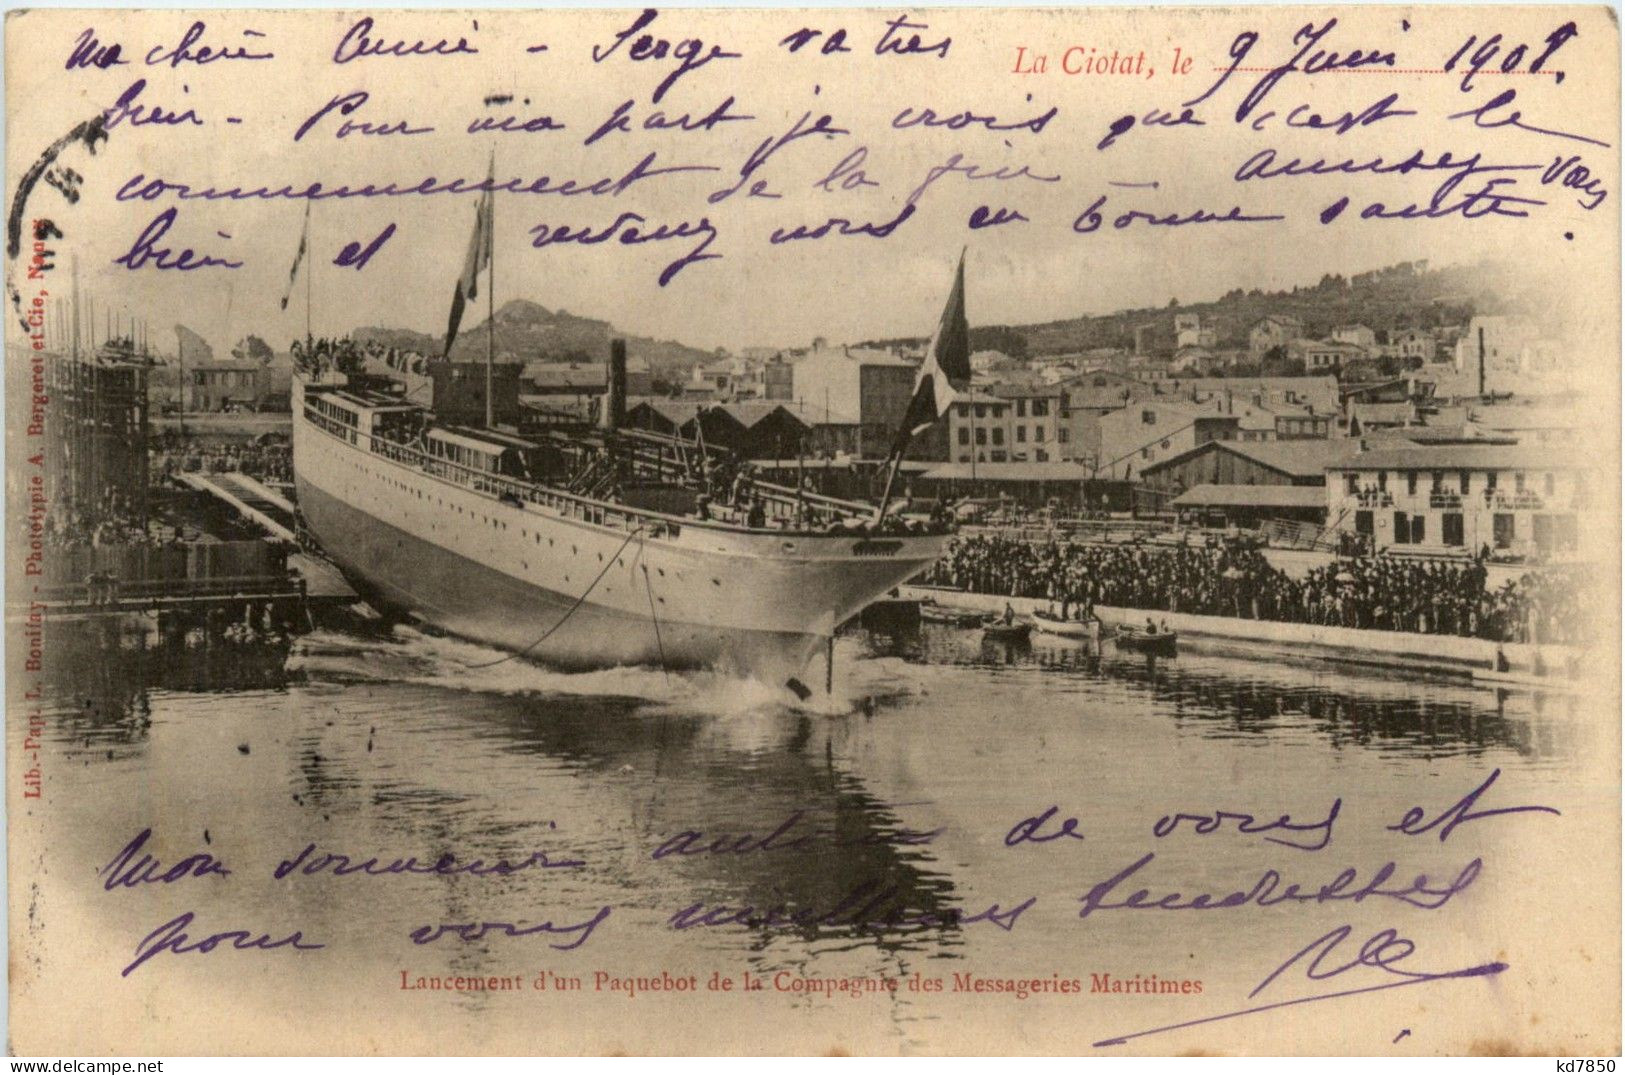 La Ciotat, le 9 Juin 1908.
Ma chère Amie - Serge va très
bien - Pour ma part je crois que c'est le
commencement de la fin - Amusez vous
bien et revenez nous en bonne santé.
Lib.-Pap. L. Bonifay - Phototypie A. Bergeret et Cie, Nancy
Mon souvenir autour de vous et
pour vous meilleures tendresses
Lancement d'un Paquebot de la Compagnie des Messageries Maritimes
kd7850